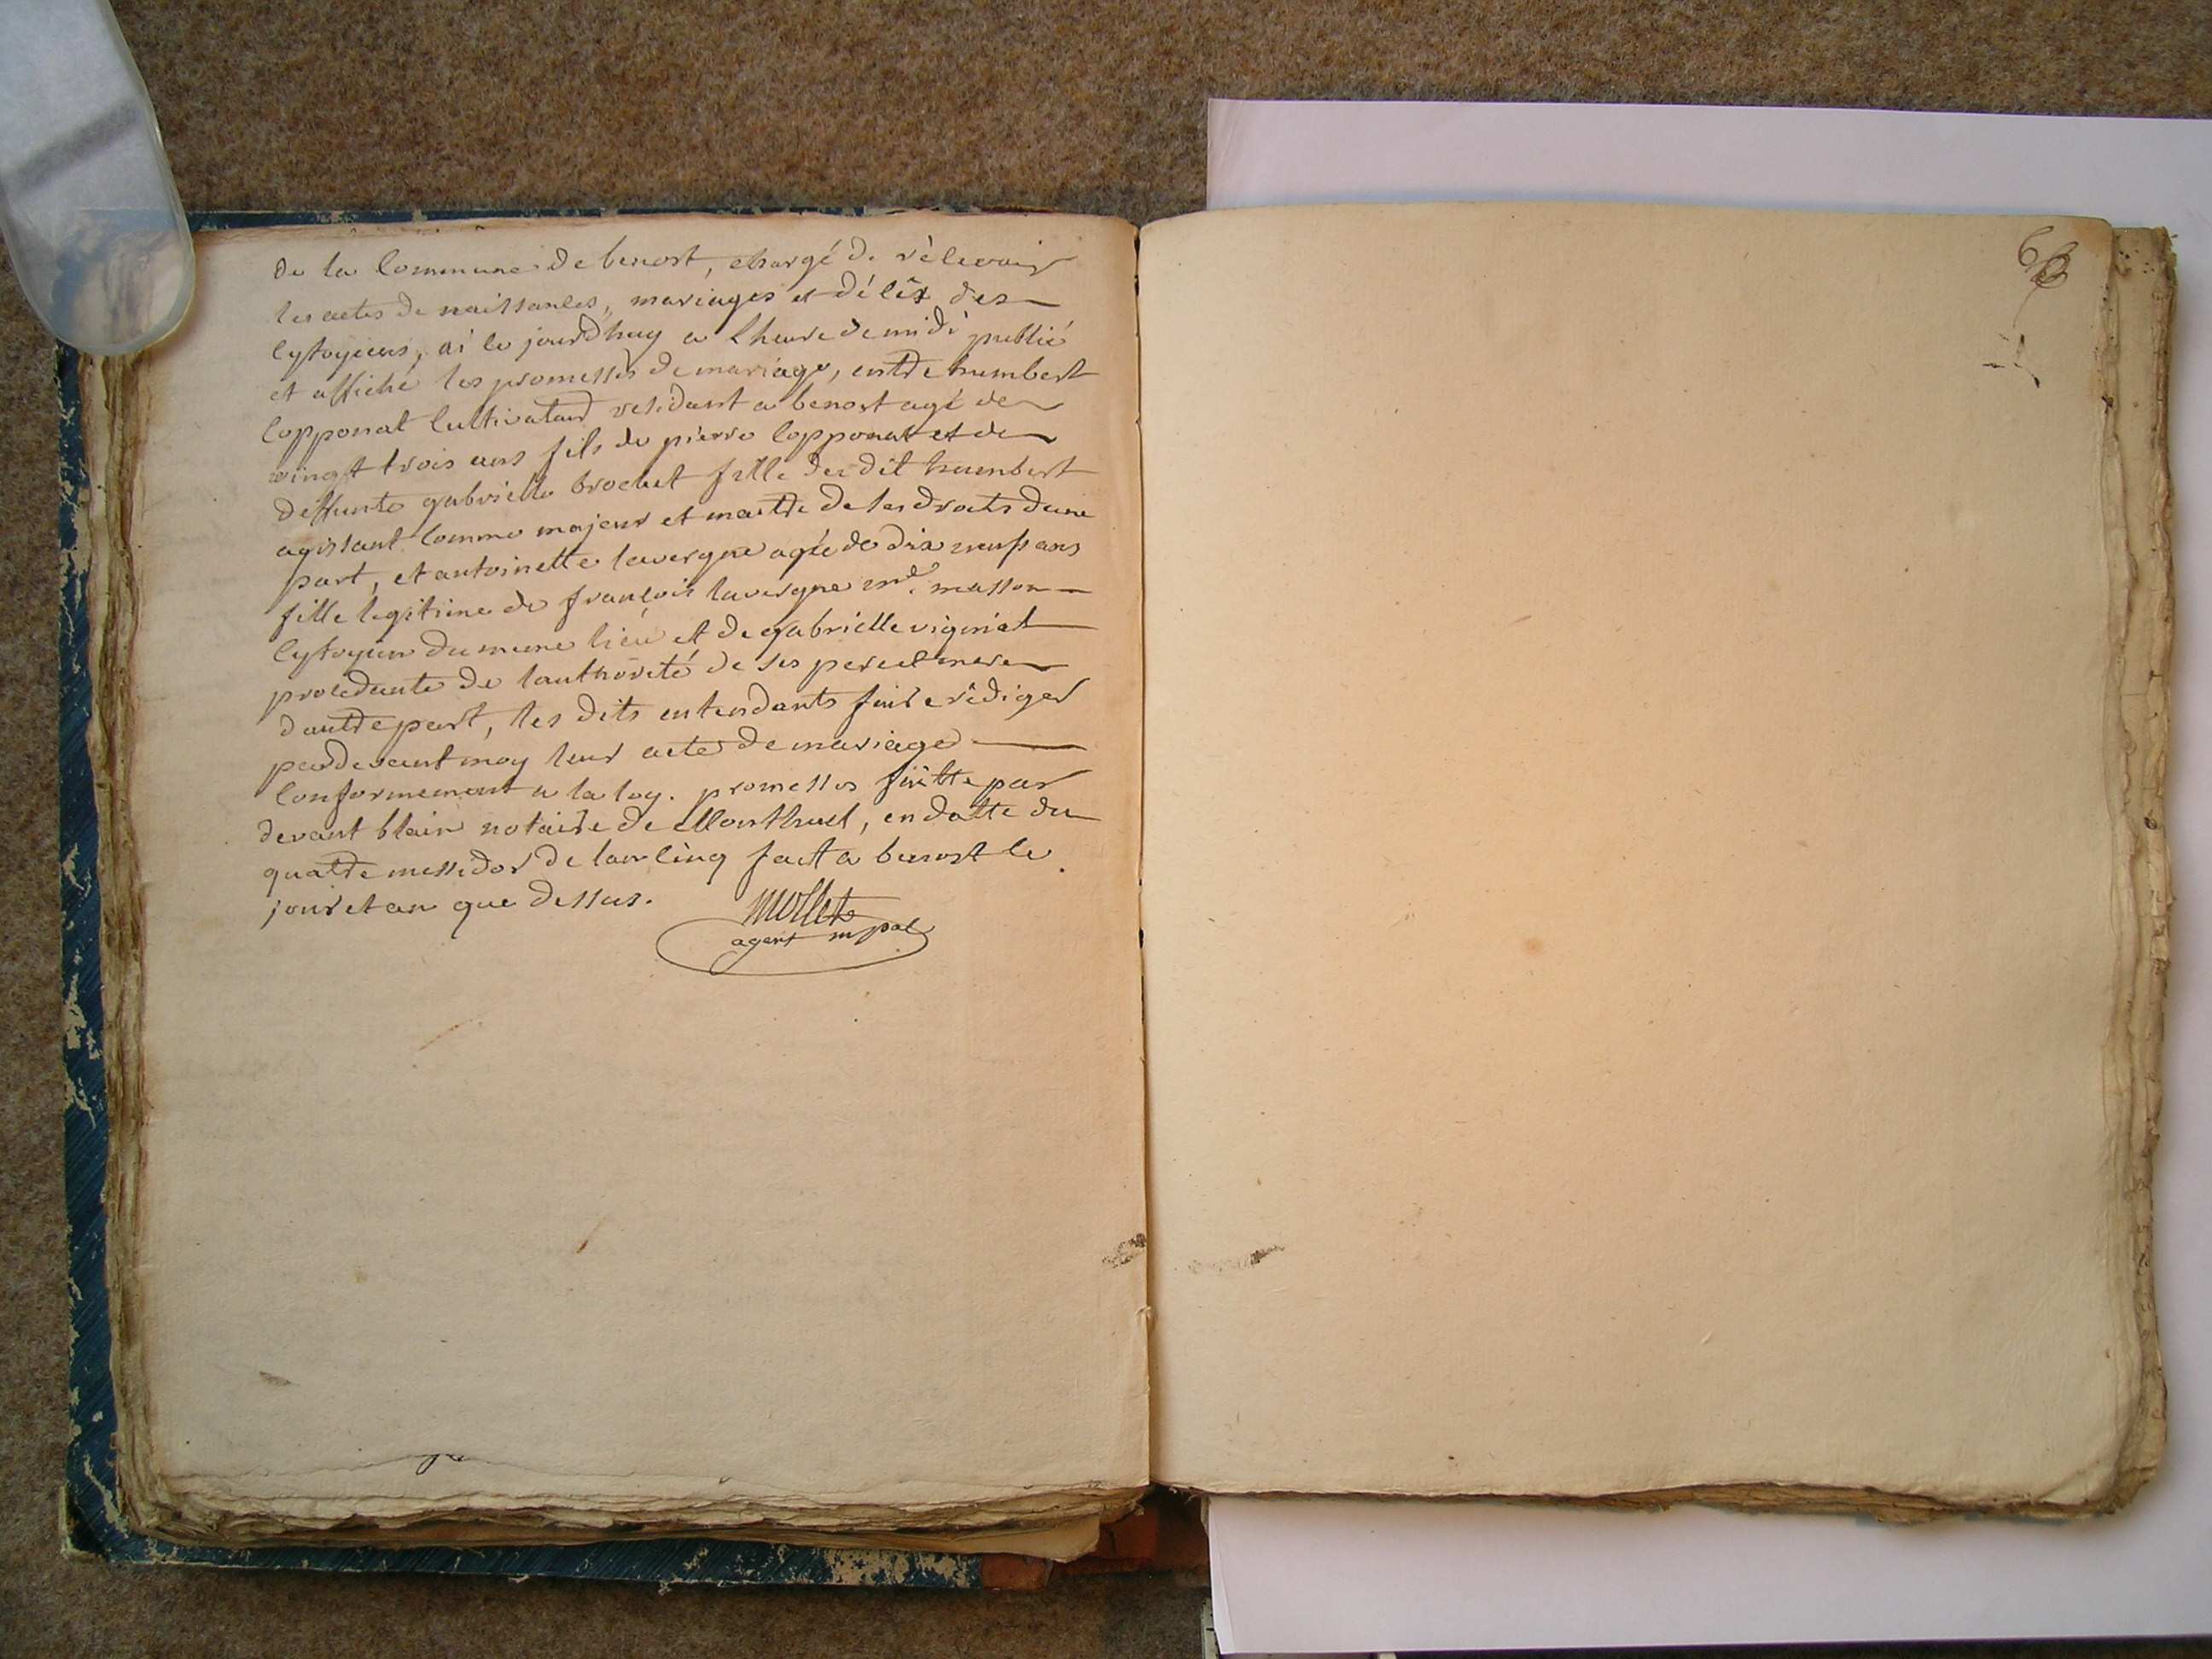 de la Commune de benost, chargé de récevoir
les actes de naissances, mariages et décéx des
cytoyiens, ai le jourdhuy a lheure de midi publié
et affiché les promesses de mariage, entre humbert
Copponat Cultivateur résidant a benost agé de
vingt trois ans fils de pierre Copponat et de
deffunte gabrielle brochet fille du dit humbert
agissant comme majeur et maitre de ses droits dune
part, et antoinette lavergne agée de dix neuf ans
fille legitime de françois lavergne md. masson
Cytoyen du meme lieu et de gabrielle vigniat
procedante de lauthorité de ses pere et mere
dautre part, les dits entendants faire rédiger
pardevant moy leur acte de mariage
Conformement a la loy. promesses faitte par
devant blain notaire de Montluel, en datte du
quatre messidor de lan cinq fait a benost le
jour et an que dessus.
mollet
agent mpal
66